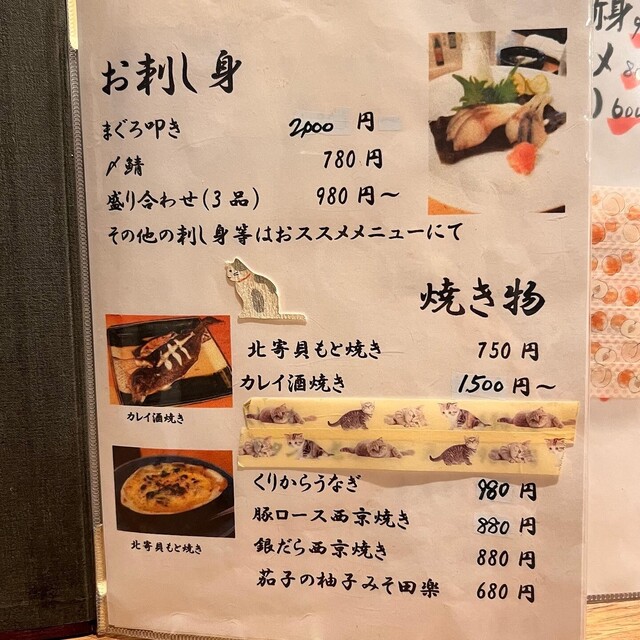 お刺し身
まぐろ叩き 2000 円
〆鯖 780 円
盛り合わせ(3品) 980 円～
その他の刺し身等はおススメメニューにて
焼き物
北寄貝もと焼き 750 円
カレイ酒焼き 1500 円～
カレイ酒焼き
くりからうなぎ 980 円
豚ロース西京焼き 880 円
銀だら西京焼き 880 円
茄子の柚子みそ田楽 680 円
北寄貝もと焼き